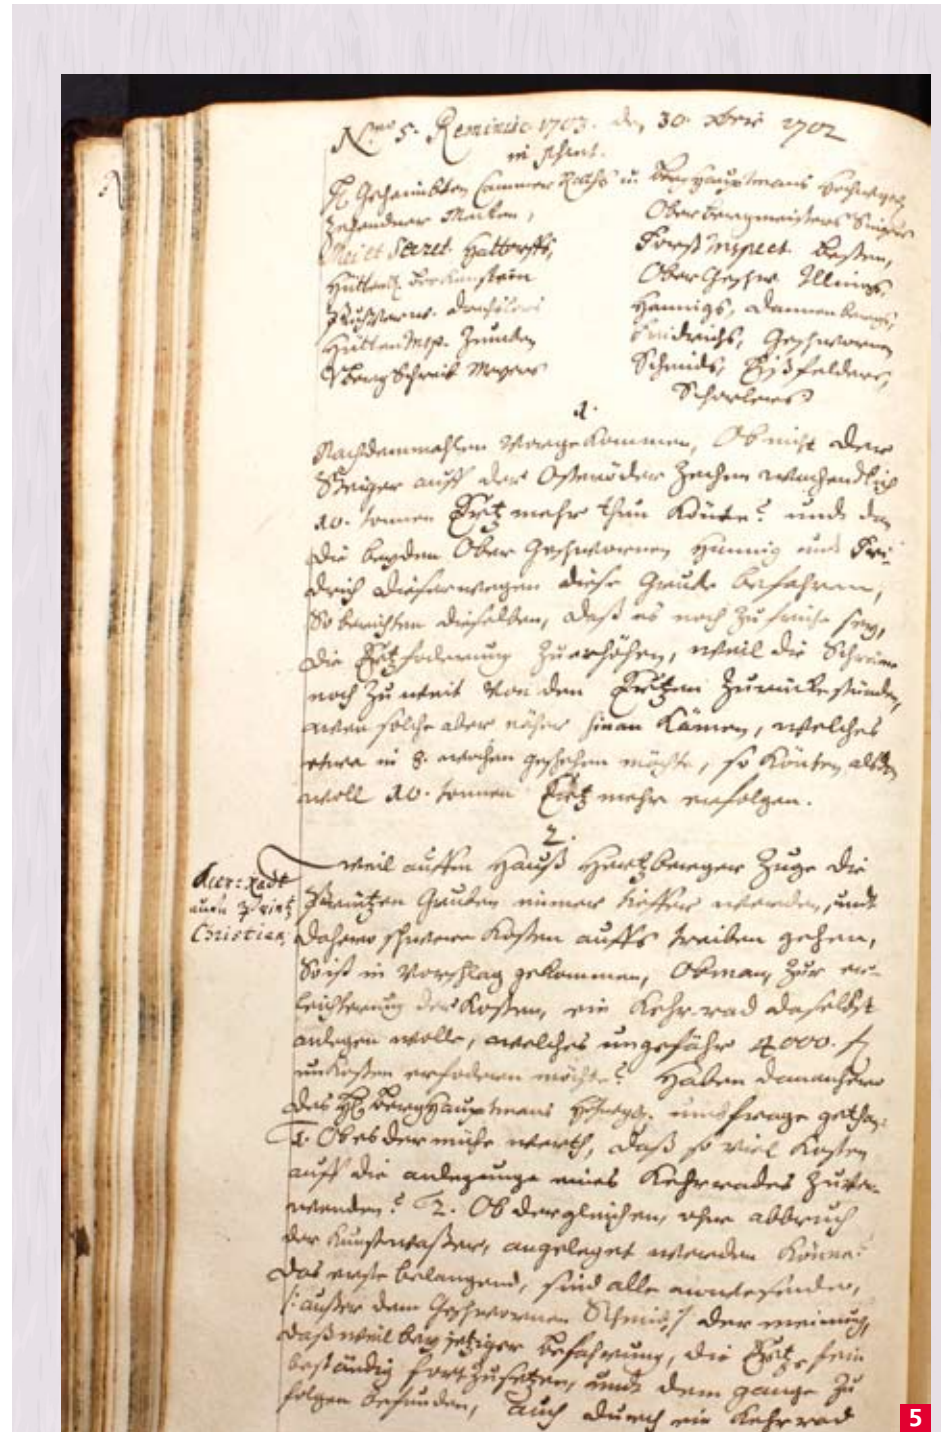 N.ro 5. Reminisc. 1703. den 30. Xbris 1702
in praes.
H. Geheimbten Cammer Raths u. Berghauptmans
Zehendner
Secret. Hattorffs,
Hütten
Hütten Insp.
Berg Schreib. Meyers
Oberbergmeisters
Forst Inspect. Besten,
Ober Geschw. Illings,
Hennigs, Dannenbergs,
Fridrichs, Geschworne
Schmids, Eißfelders,
1.
Nachdemmahlen Vorgekommen, Ob nicht der
Steiger auff der Zechen wochendlich
10. tonnen Ertz mehr thun Könte? undt
die beyden Ober Geschwornen Hennig und Fri-
drich dieserwegen diese Grube befahren,
So berichten dieselben, daß es noch zu früh sey,
die Ertzfoderung Zuerhöhen, weil die
noch Zu weit Von den Ertzen Zurücke stünden,
wen solche aber näher hinan Kämen, welches
etwa in 8. wochen geschehen möchte, so Könten alsden
woll 10. tonnen Ertz mehr erfolgen.
2.
Kerr=radt
Printz
Christian,
weil auffm Hauß Hertzberger Zuge die
Gruben immer tieffer werden, undt
dahero schwere Kosten auffs treiben gehen,
So ist in Vorschlag gekommen, Ob man, Zur er-
leichterung der Kosten, ein Kehr-rad daselbst
anlegen wolle, welches ungefähr 4000. fl
unkosten erfodern möchte? Haben dannenhero
des H. Berghauptmans umbfrage gethan:
1. Ob es der mühe werth, daß so viel Kosten
auff die anlegunge eines Kehrrades Zuver-
wenden? 2. Ob dergleichen, ohne abbruch
der Kunstwaßer, angeleget werden Könne?
Das erste belangend, sind alle anwesende,
/: außer dem Geschwornen Schmid :/ der meinung,
daß weil bey jetziger befahrung, die Ertze fein
beständig fortzusetzen, undt dem gange Zu
folgen befunden, auch durch ein Kehrrad
5